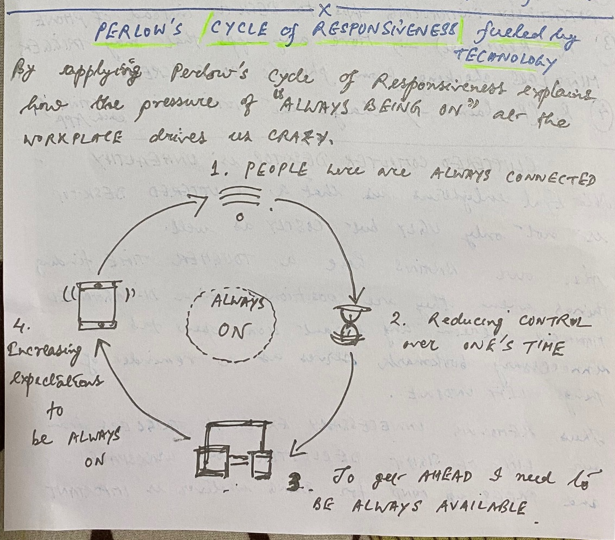 x
PERLOW'S CYCLE of RESPONSIVENESS fueled by
TECHNOLOGY
By applying Perlow's Cycle of Responsiveness explains
how the pressure of "ALWAYS BEING ON" at the
WORKPLACE drives us CRAZY.
1. PEOPLE here are ALWAYS CONNECTED
ALWAYS
ON
2. Reducing CONTROL
over ONE'S TIME
4.
Increasing
expectations
to
be ALWAYS
ON
3. To get AHEAD I need to
BE ALWAYS AVAILABLE.